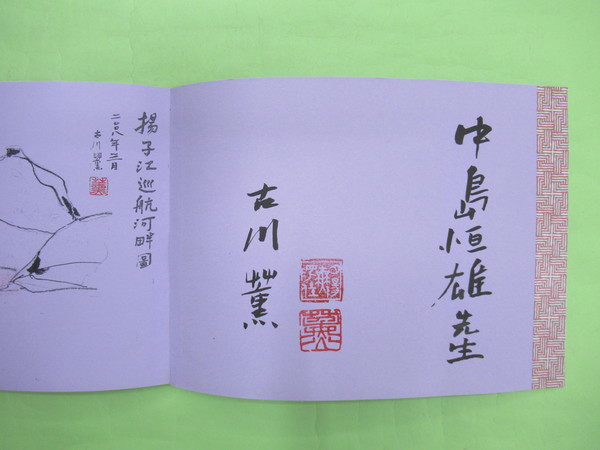 中島恒雄先生
古川薫
揚子江巡航河畔圖
二〇〇八年三月
古川薫